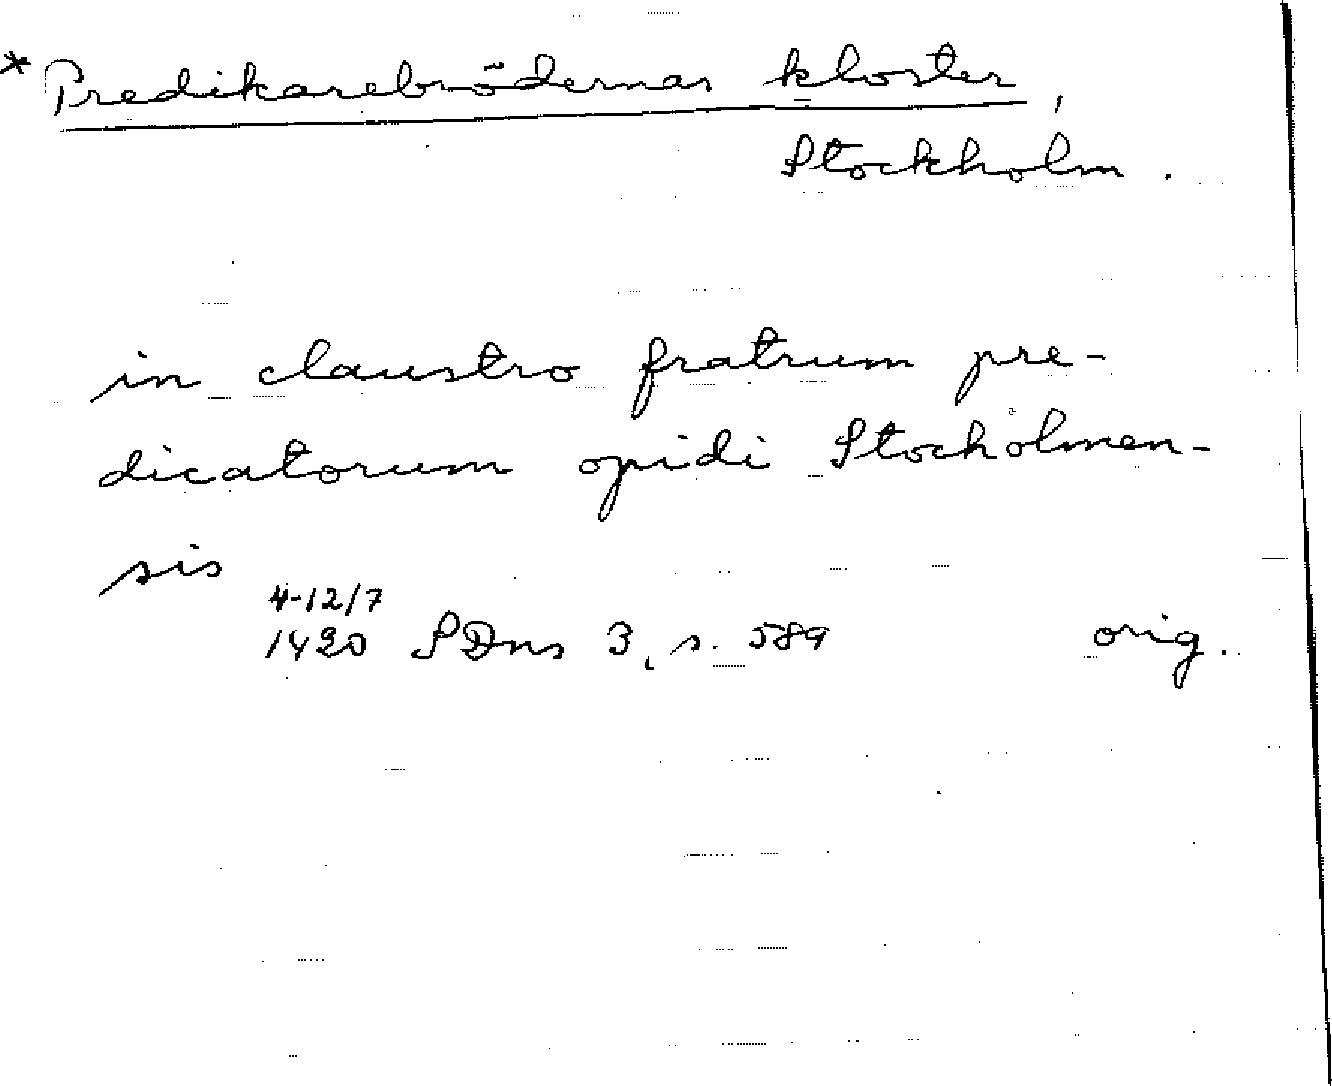 * Predikarebrödernas kloster,
Stockholm.
in claustro fratrum pre-
dicatorum opidi Stocholmen-
sis
4-12/7
1420 SDns 3, s. 589 orig.